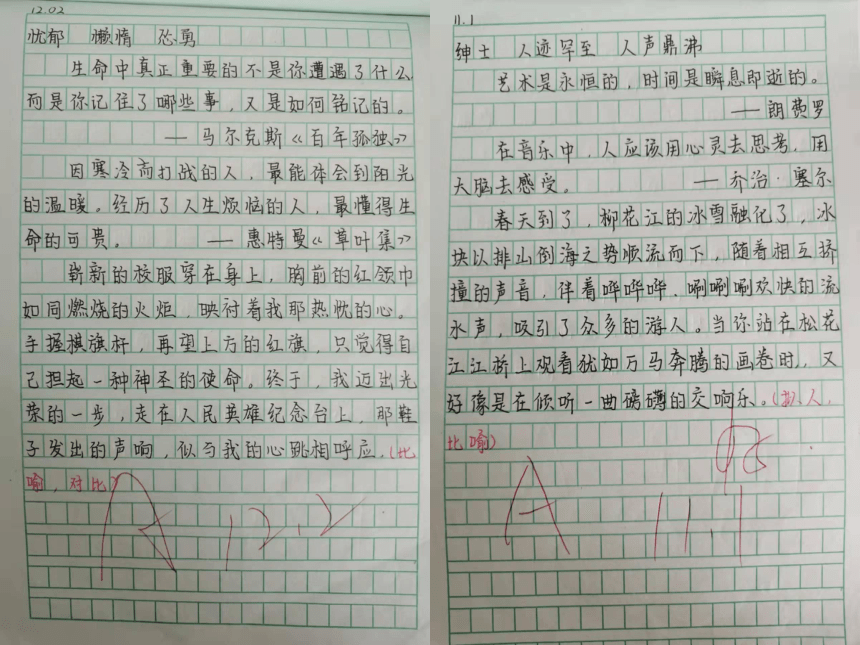 12.02
忧郁 懒惰 怂勇
生命中真正重要的不是你遭遇了什么
而是你记住了哪些事，又是如何铭记的。
——马尔克斯《百年孤独》
因寒冷而打战的人，最能体会到阳光
的温暖。经历了人生烦恼的人，最懂得生
命的可贵。 ——惠特曼《草叶集》
崭新的校服穿在身上，胸前的红领巾
如同燃烧的火炬，映衬着我那热忱的心。
手握棋旗杆，再望上方的红旗，只觉得自
己担起一种神圣的使命。终于，我迈出光
荣的一步，走在人民英雄纪念台上，那鞋
子发出的声响，似与我的心跳相呼应。(比
喻，对比)
12.2
11.1
绅士 人迹罕至 人声鼎沸
艺术是永恒的，时间是瞬息即逝的。
——朗费罗
在音乐中，人应该用心灵去思考，用
大脑去感受。 ——乔治·塞尔
春天到了，柳花江的冰雪融化了，冰
块以排山倒海之势顺流而下，随着相互挤
撞的声音，伴着哗哗哗、唰唰唰欢快的流
水声，吸引了众多的游人。当你站在松花
江江桥上观看犹如万马奔腾的画卷时，又
好像是在倾听一曲磅礴的交响乐。(拟人，
比喻)
A 11.1